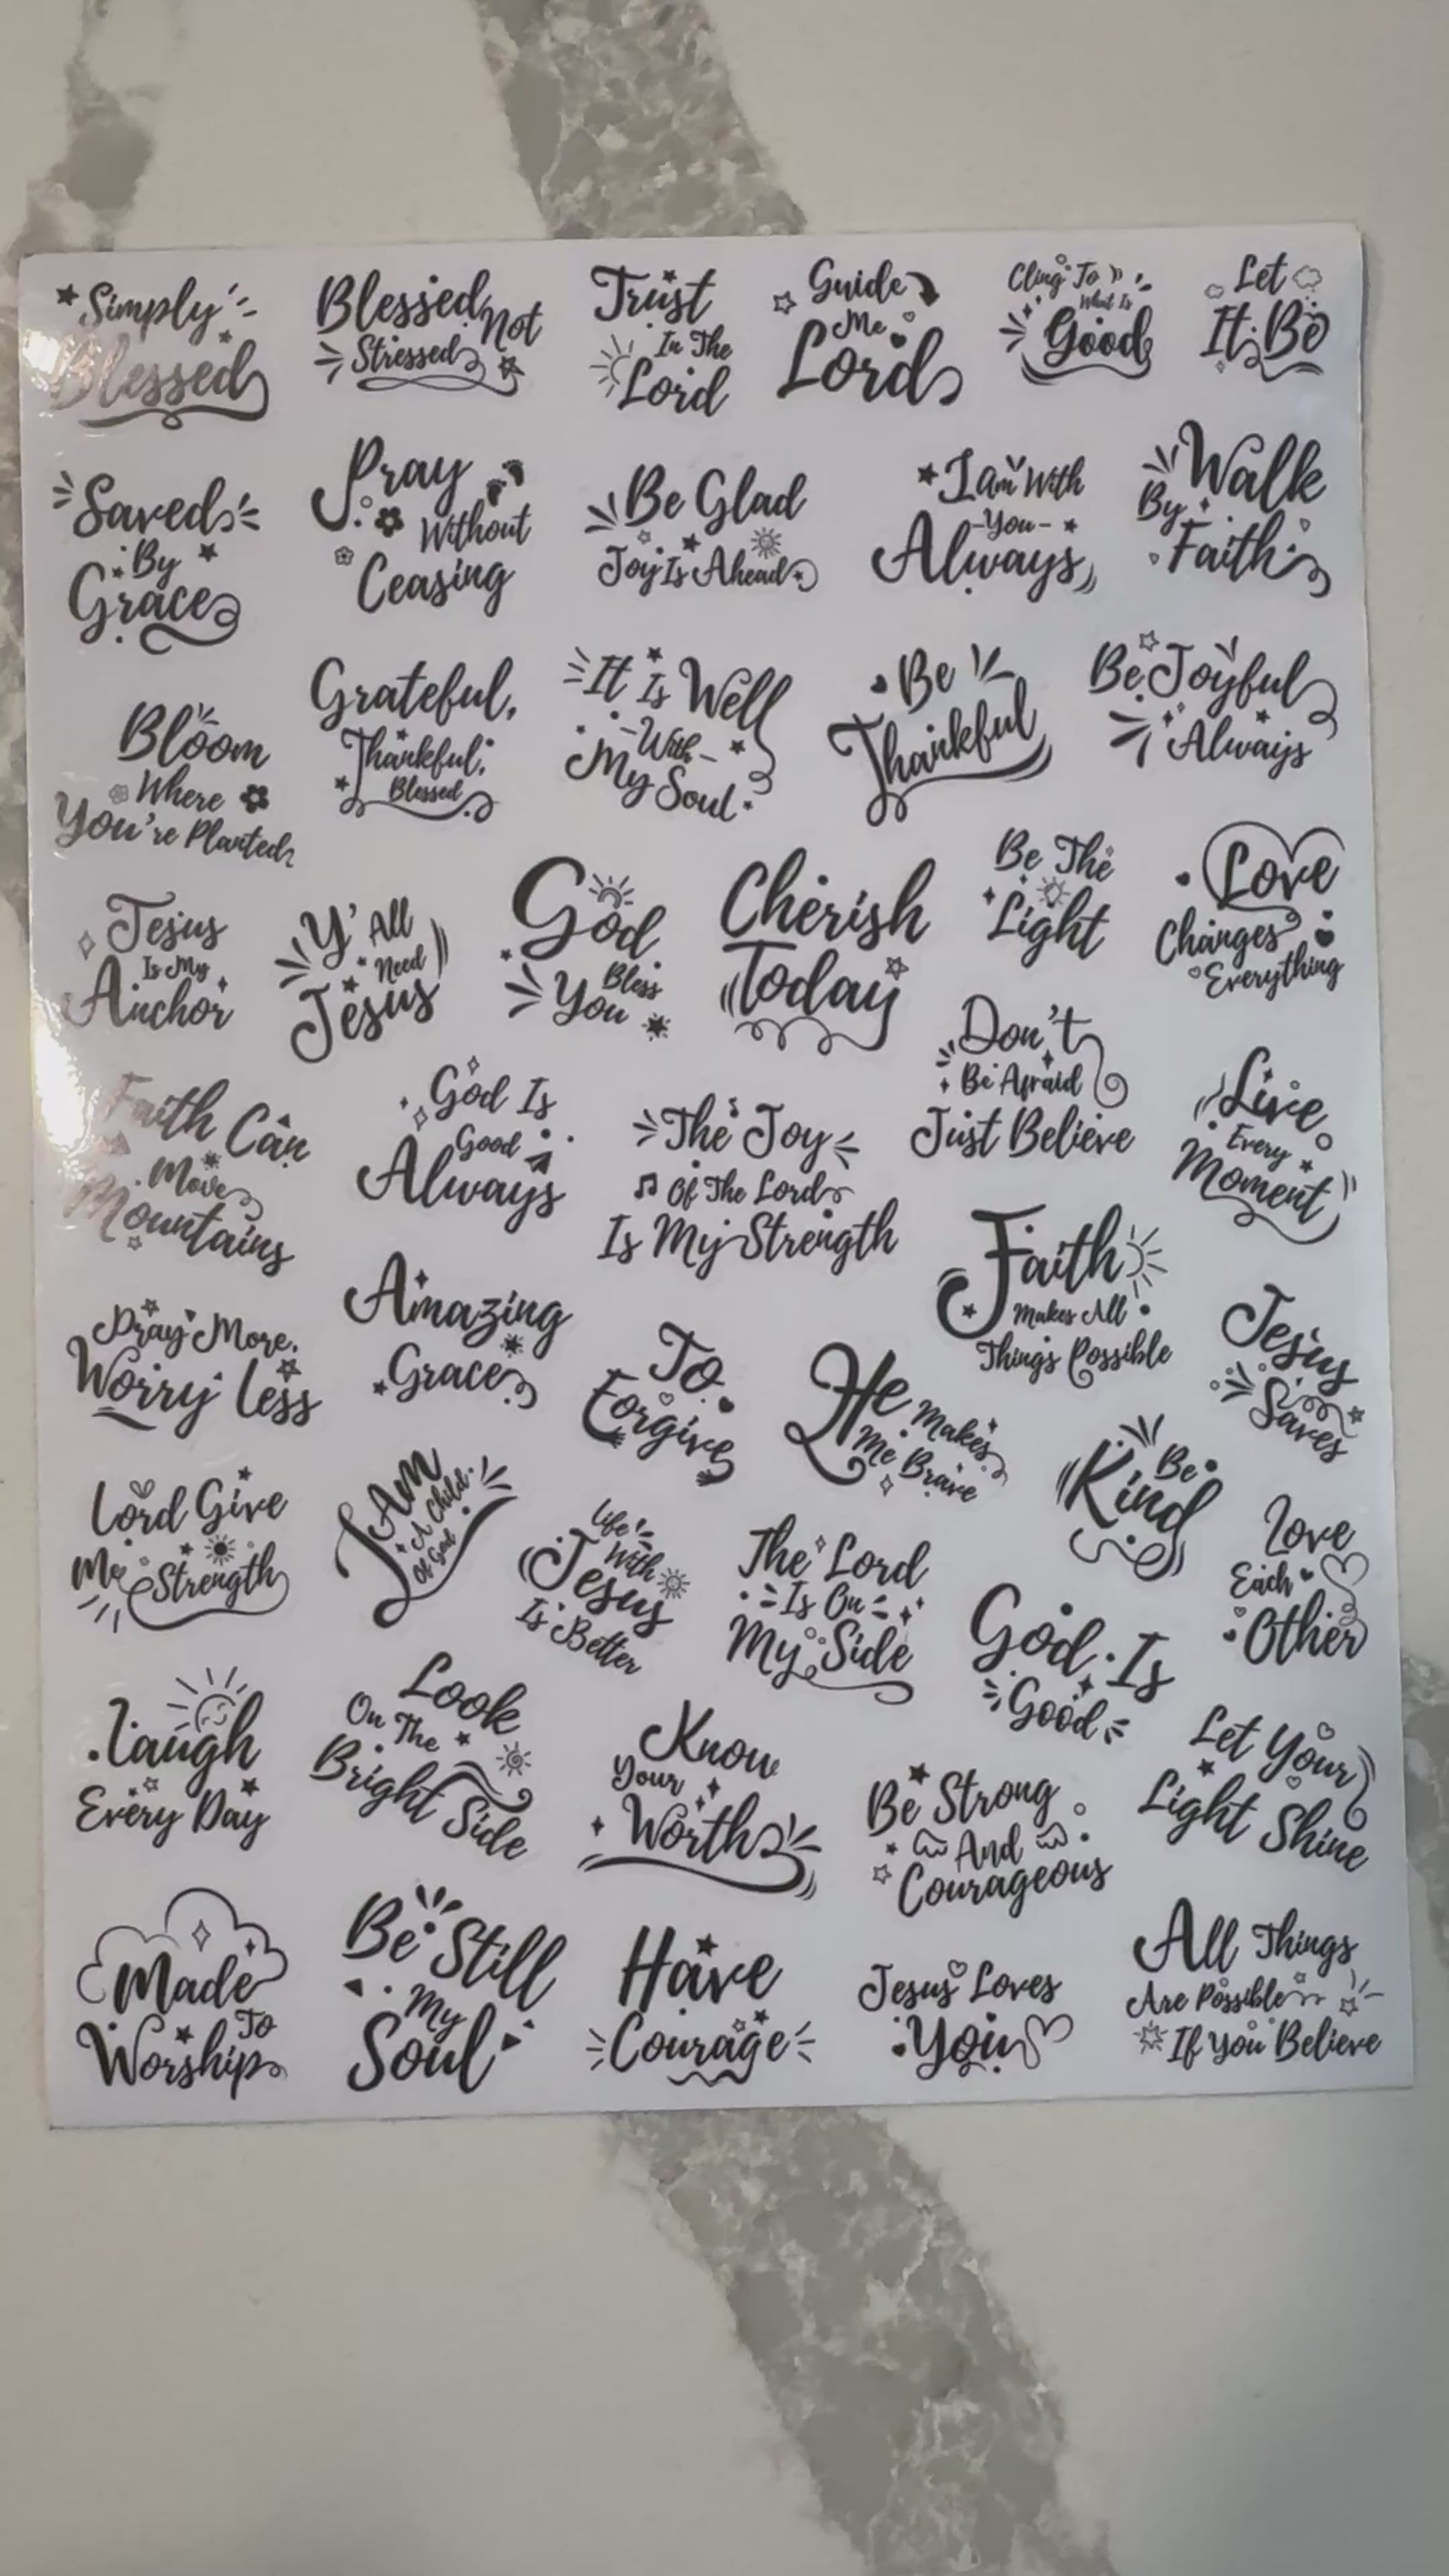 Simply
Blessed
Blessed Not
Stressed
Trust
In The
Lord
Guide
Me
Lord
Cling To
What Is
Good
Let
It Be
Saved
By
Grace
Pray
Without
Ceasing
Be Glad
Joy Is Ahead
I am With
-You-
Always
Walk
By
Faith
Bloom
Where
You're Planted
Grateful,
Thankful,
Blessed
It Is Well
-With-
My Soul
Be
Thankful
Be Joyful
Always
Jesus
Is My
Anchor
Y'All
Need
Jesus
God
Bless
You
Cherish
Today
Be The
Light
Love
Changes
Everything
Faith Can
Move
Mountains
God Is
Good
Always
The Joy
Of The Lord
Is My Strength
Don't
Be Afraid
Just Believe
Live
Every
Moment
Pray More,
Worry Less
Amazing
Grace
To
Forgive
He Makes
Me Brave
Faith
Makes All
Things Possible
Jesus
Saves
Lord Give
Me Strength
I AM
A Child
Of God
Life
With
Jesus
Is Better
The Lord
Is On
My Side
Be
Kind
God Is
Good
Love
Each
Other
Laugh
Every Day
Look
On The
Bright Side
Know
Your
Worth
Be Strong
And
Courageous
Let Your
Light Shine
Made
To
Worship
Be Still
My
Soul
Have
Courage
Jesus Loves
You
All Things
Are Possible
If You Believe